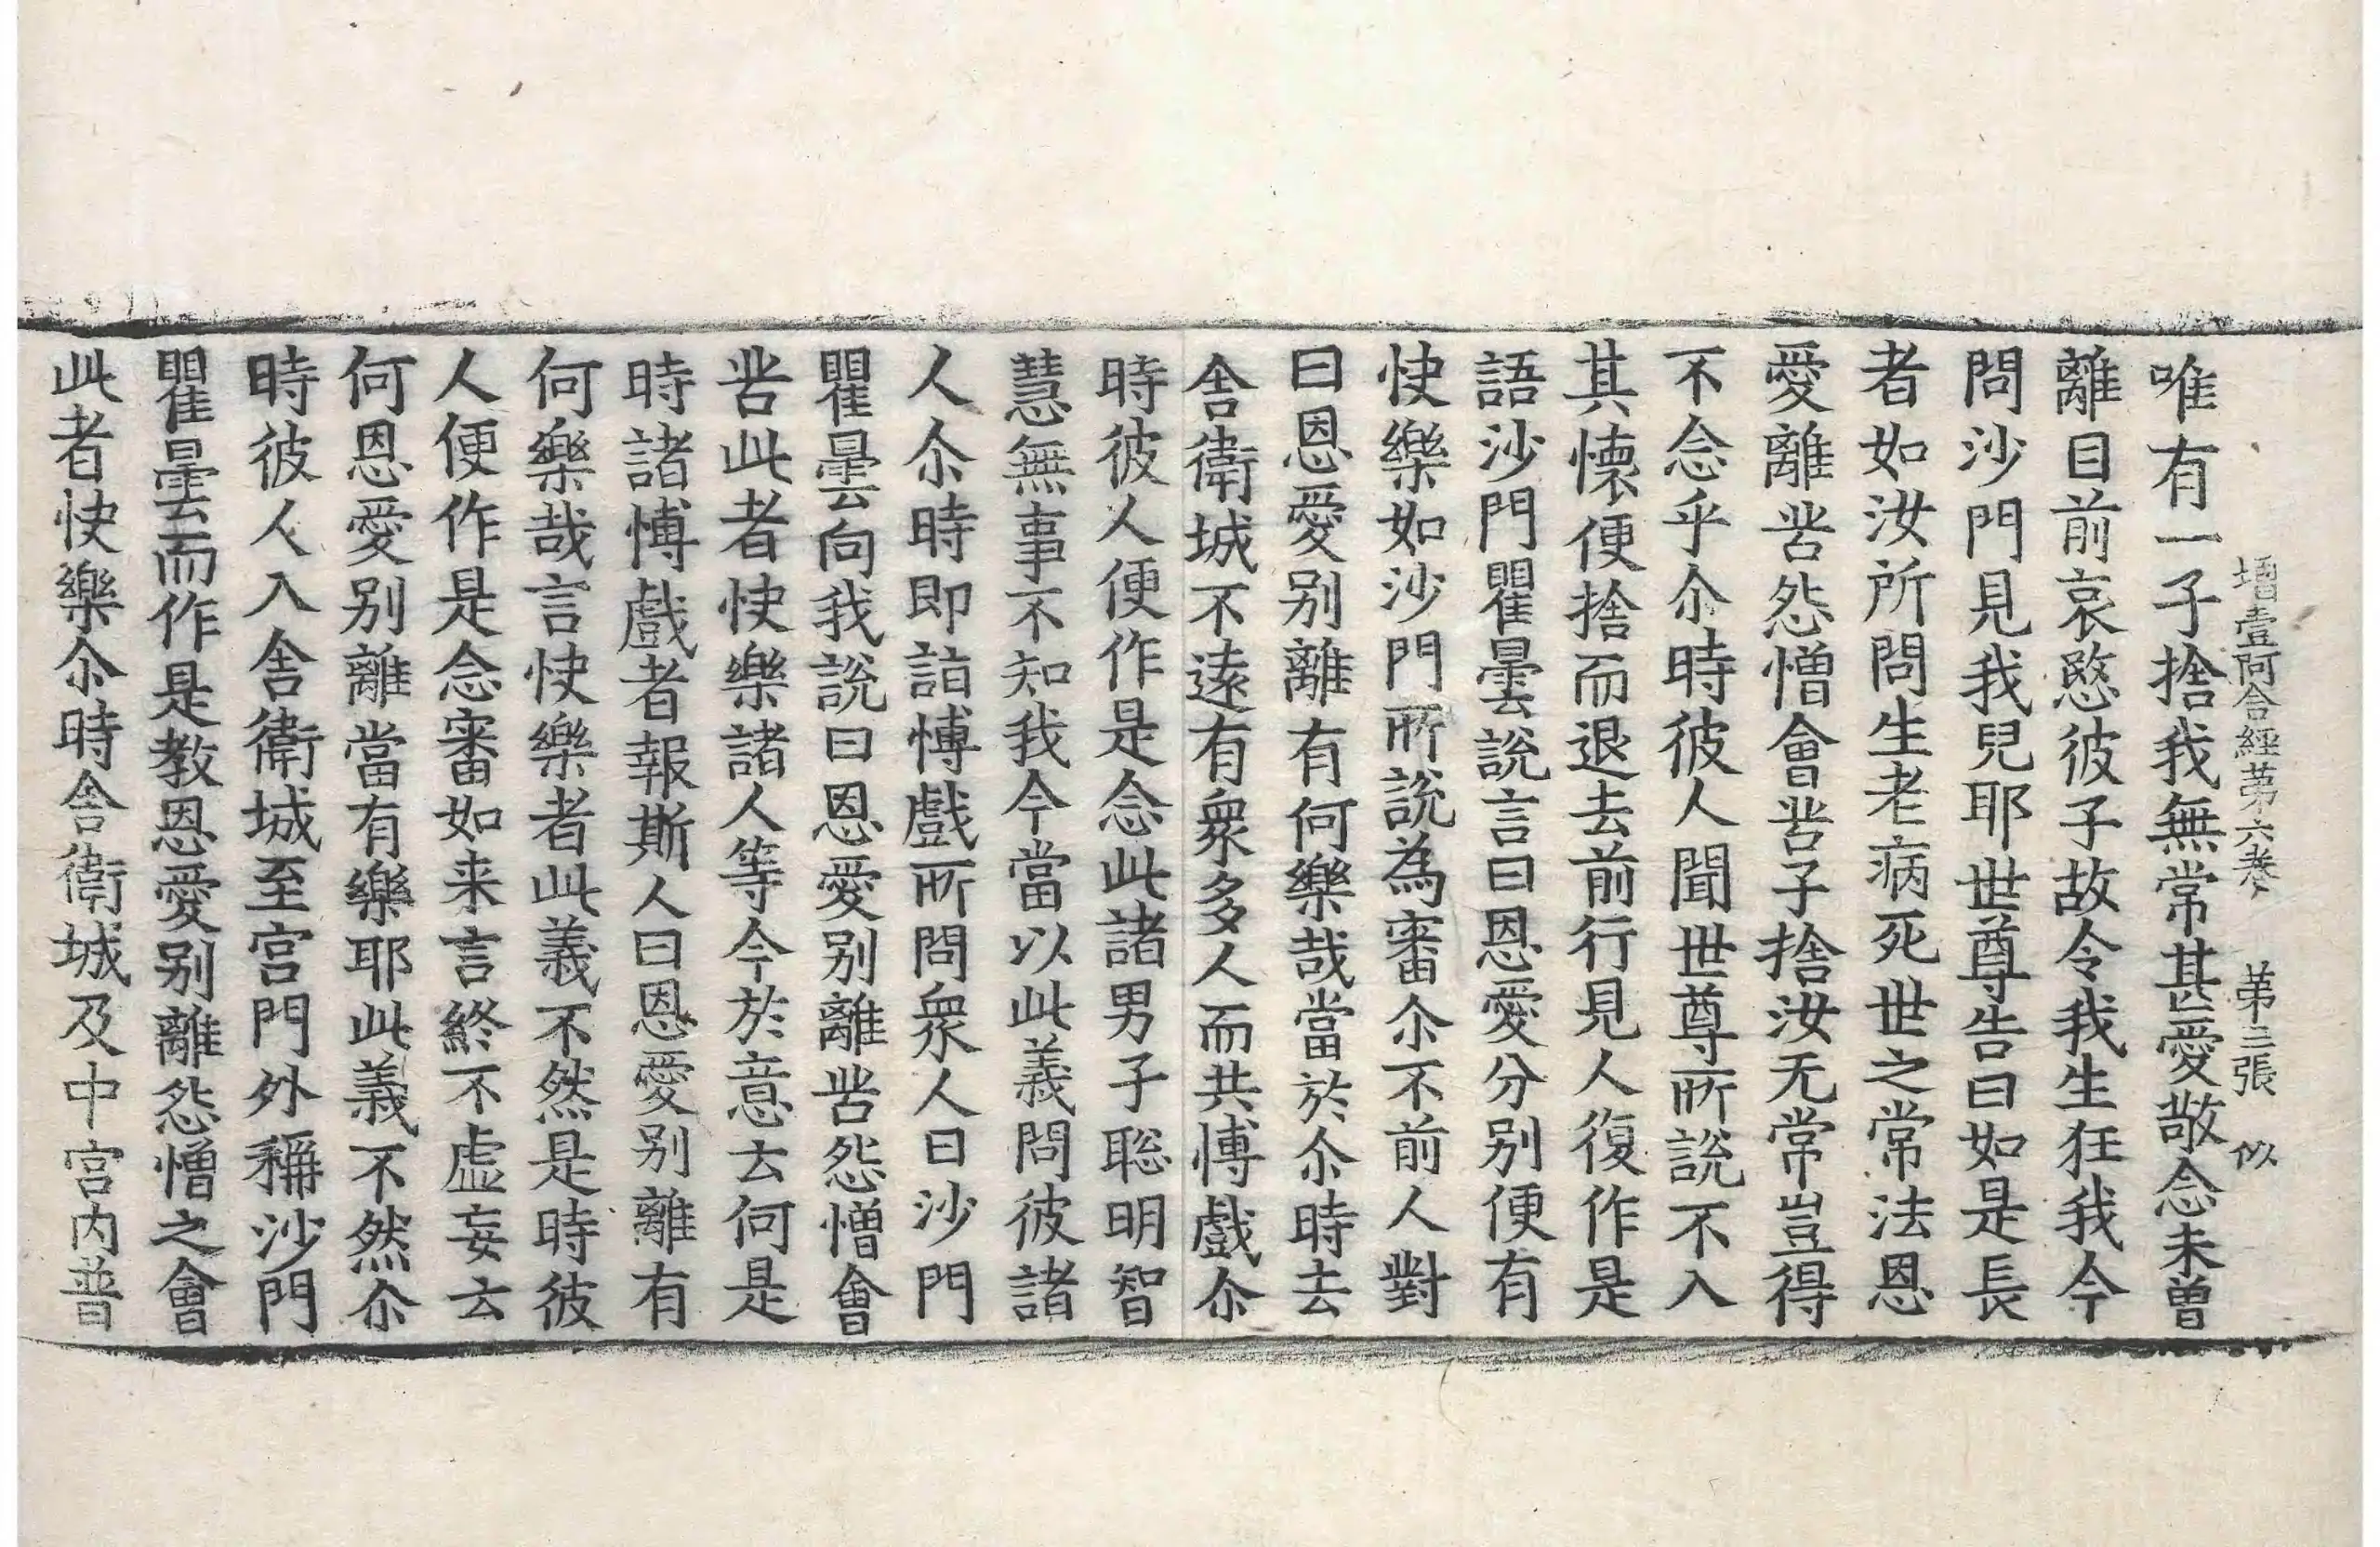 增壹阿含經第六卷　第三張　似
唯有一子捨我無常甚愛敬念未曾
離目前哀愍彼子故令我生狂我今
問沙門見我兒耶世尊告曰如是長
者如汝所問生老病死世之常法恩
愛離苦怨憎會苦子捨汝无常豈得
不念乎尒時彼人聞世尊所說不入
其懷便捨而退去前行見人復作是
語沙門瞿曇說言曰恩愛分別便有
快樂如沙門所說為審尒不前人對
曰恩愛別離有何樂哉當於尒時去
舍衛城不遠有衆多人而共博戲尒
時彼人便作是念此諸男子聡明智
慧無事不知我今當以此義問彼諸
人尒時即詣博戲所問衆人曰沙門
瞿曇向我說曰恩愛別離苦怨憎會
苦此者快樂諸人等今於意云何是
時諸博戲者報斯人曰恩愛別離有
何樂哉言快樂者此義不然是時彼
人便作是念審如来言終不虛妄云
何恩愛別離當有樂耶此義不然尒
時彼人入舍衛城至宮門外稱沙門
瞿曇而作是教恩愛別離怨憎之會
此者快樂尒時舍衛城及中宮內普